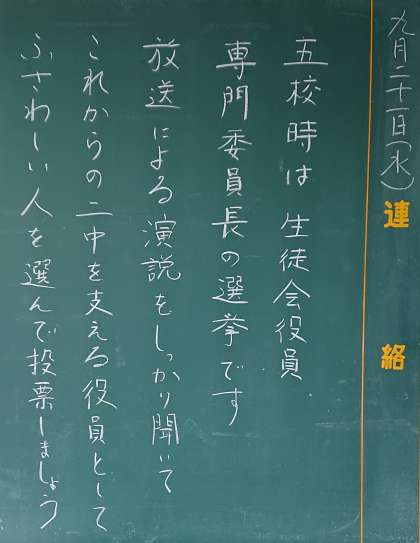 九月二十一日(水)
連絡
五校時は 生徒会役員
専門委員長の選挙です
放送による演説をしっかり聞いて
これからの二中を支える役員として
ふさわしい人を選んで投票しましょう